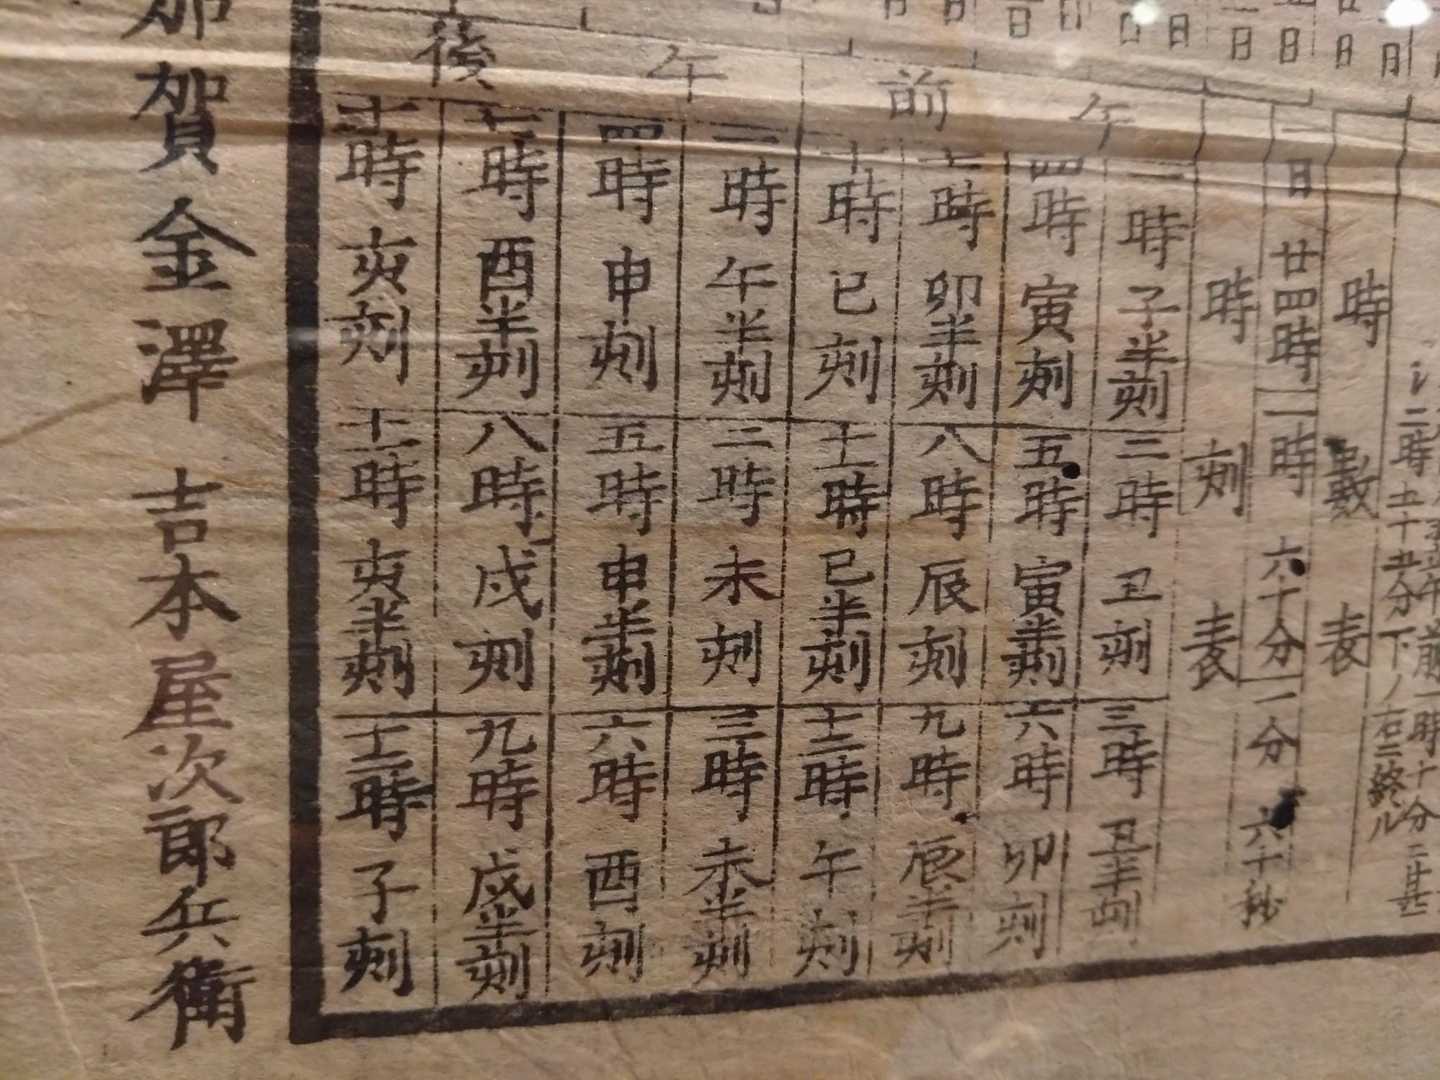 時数表
時刻表
一日廿四時
一時六十分
一分六十秒
午前
一時 子半刻
二時 丑刻
三時 丑半刻
四時 寅刻
五時 寅半刻
六時 卯刻
七時 卯半刻
八時 辰刻
九時 辰半刻
十時 巳刻
十一時 巳半刻
十二時 午刻
午後
一時 午半刻
二時 未刻
三時 未半刻
四時 申刻
五時 申半刻
六時 酉刻
七時 酉半刻
八時 戌刻
九時 戌半刻
十時 亥刻
十一時 亥半刻
十二時 子刻
加賀金澤 吉本屋次郎兵衛